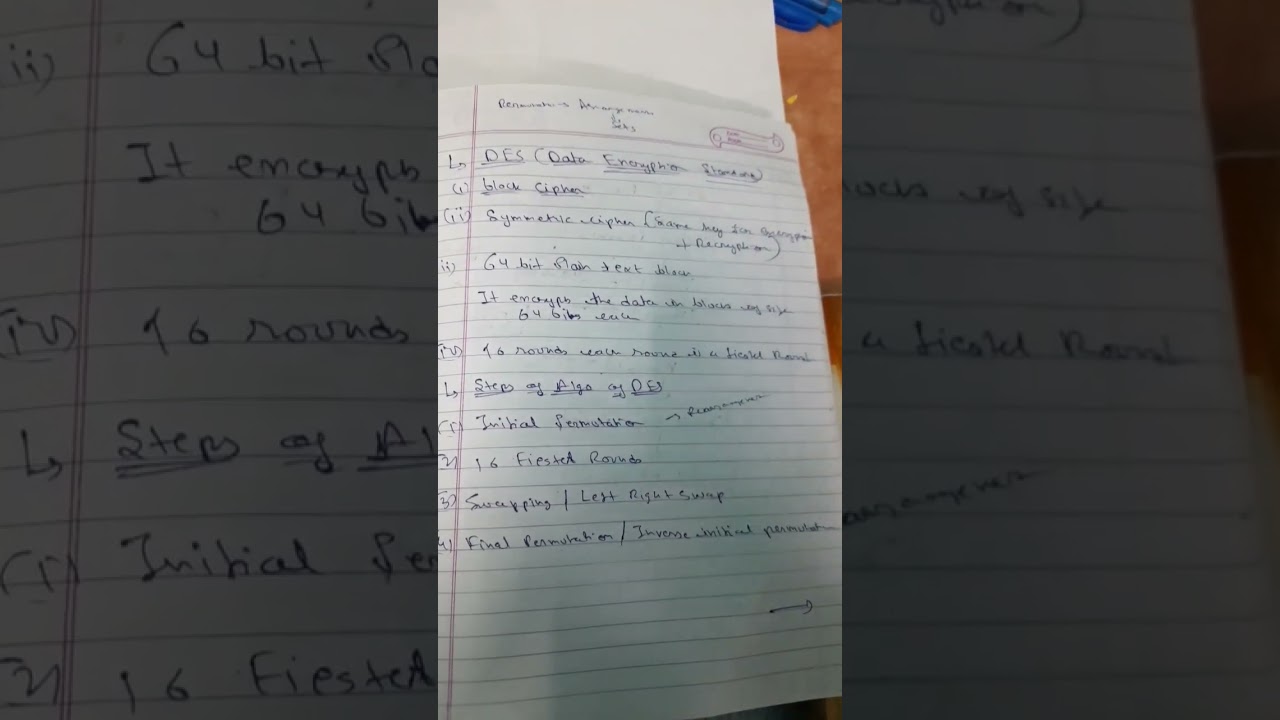 Arrangement
bits
↳ DES (Data Encryption Standard)
(i) block cipher
(ii) Symmetric cipher (Same key for Encryption
+ Decryption)
ii) 64 bit Plain text block
It encrypts the data in blocks of size
64 bits each
(iv) 16 rounds each round is a fiestel Round
↳ Steps of Algo of DES
(1) Initial Permutation → Rearrangement
2) 16 Fiestel Rounds
3) Swapping / Left Right Swap
4) Final Permutation / Inverse initial permutation
→